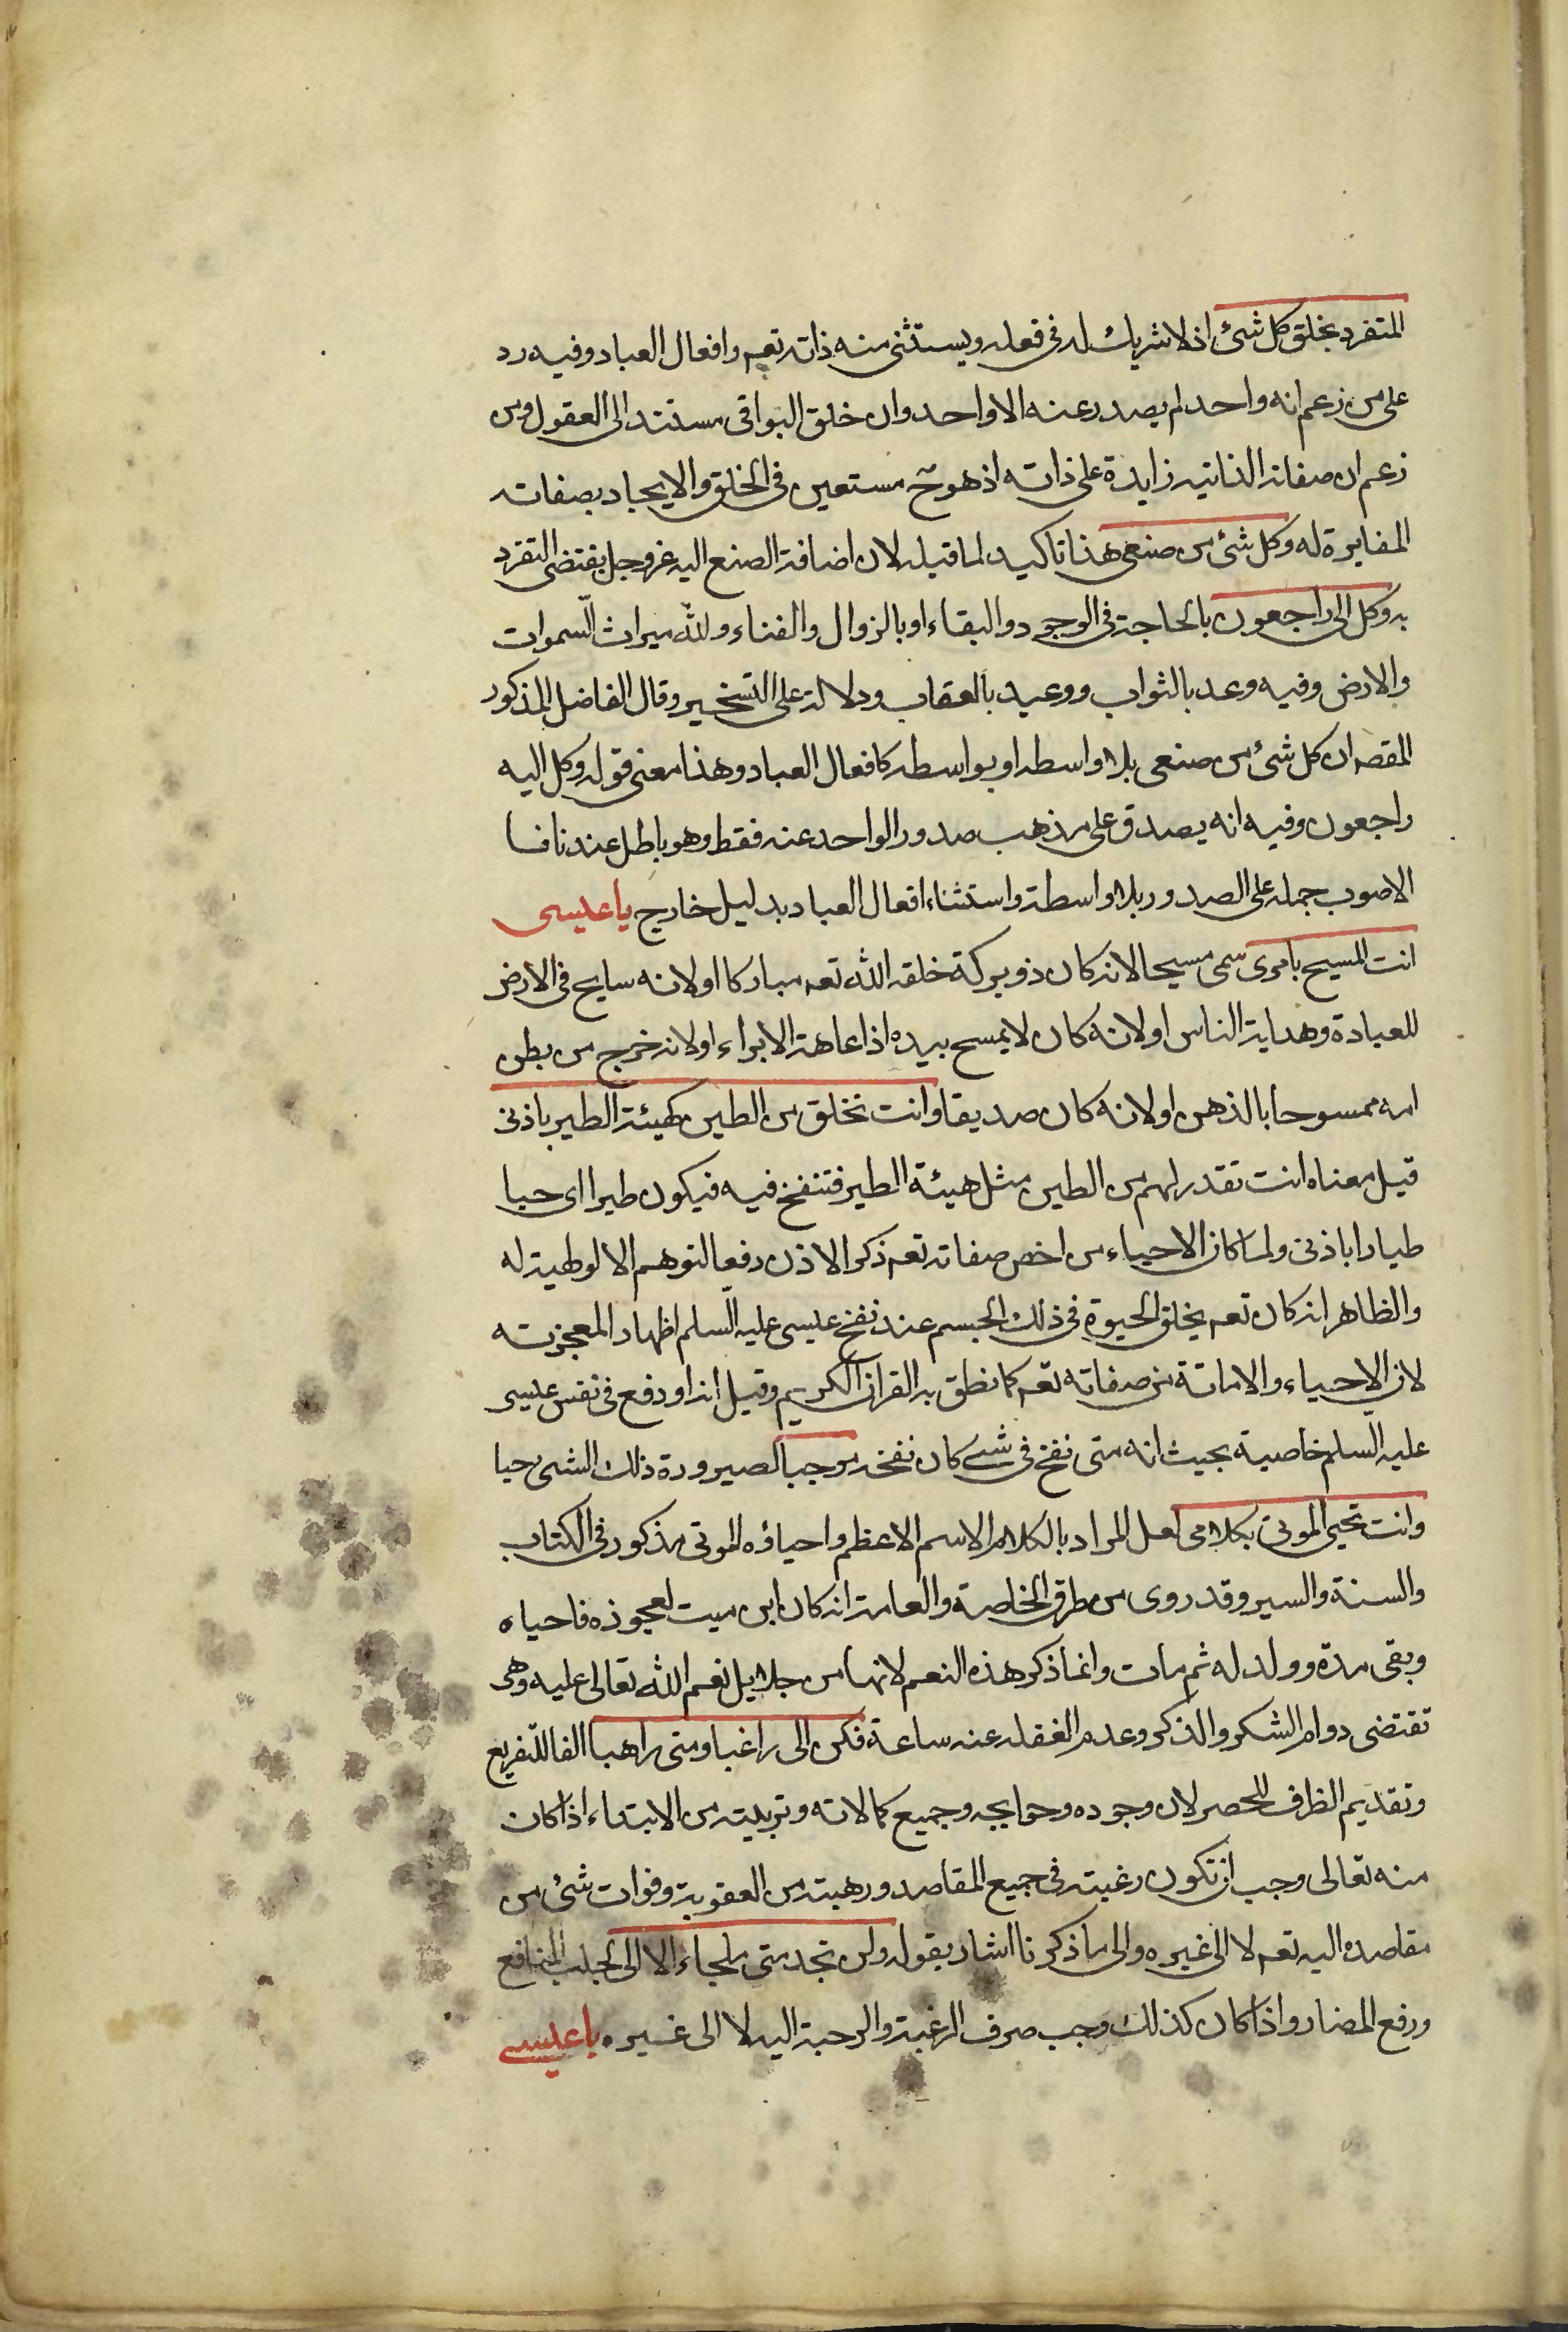 المتفرد بخلق كل شئ اذ لا شريك له فى فعله ويستثنى منه ذاته تعم وافعال العباد وفيه رد
على من زعم انه واحد لم يصدر عنه الا واحد وان خلق البواقى مستند الى العقول ومن
زعم ان صفاته الذاتيه زايدة على ذاته اذ هو ح مستعين فى الخلق والايجاد بصفاته
المغايرة له وكل شئ من صنعى هذا تاكيد لما قبله لان اضافة الصنع اليه عز وجل يقتضى التفرد
به وكل الى راجعون بالحاجة فى الوجود والبقاء او بالزوال والفناء ولله ميراث السموات
والارض وفيه وعد بالثواب ووعيد بالعقاب ودلالة على التسخير وقال الفاضل المذكور
المقصه ان كل شئ من صنعى بلا واسطه او بواسطه كافعال العباد وهذا معنى قوله وكل اليه
راجعون وفيه انه يصدق على مذهب صدور الواحد عنه فقط وهو باطل عندنا فا
الاصوب حمله على الصدور بلا واسطة واستثناء افعال العباد بدليل خارج يا عيسى
انت المسيح بامرى سمى مسيحا لانه كان ذو بركة خلقه الله تعم مباركا او لانه سايح فى الارض
للعبادة وهداية الناس او لانه كان لا يمسح بيده اذا عاهة الا براء او لانه خرج من بطن
امه ممسوحا بالذهن او لانه كان صديقا وانت تخلق من الطين كهيئة الطير باذنى
قيل معناه انت تقدر لهم من الطين مثل هيئة الطير فتنفخ فيه فيكون طيرا اى حيا
طيارا باذنى ولما كان الاحياء من اخص صفاته تعم ذكر الاذن دفعا لتوهم الالوطية له
والظاهر انه كان تعم يخلق الحيوة فى ذلك الجسم عند نفخ عيسى عليه السلم اظهار المعجزته
لان الاحياء والاماتة من صفاته تعم كما نطق به القران الكريم وقيل انه اودع فى نفس عيسى
عليه السلم خاصية بحيث انه متى نفخ فى شئ كان نفخه موجبا لصيرورة ذلك الشئ حيا
وانت تحيى الموتى بكلامى لعل المراد بالكلام الاسم الاعظم واحياؤه الموتى مذكور فى الكتاب
والسنة والسير وقد روى من طرق الخاصة والعامة انه كان ابن ميت لعجوزه فاحياه
وبقى مدة وولد له ثم مات وانما ذكر هذه النعم لانها من جلايل نعم الله تعالى عليه وهى
تقتضى دوام الشكر والذكر وعدم الغفله عنه ساعة فكن الى راغبا ومنى راهبا الفا للتفريع
وتقديم الظرف للحصر لان وجوده وحوايجه وجميع كمالاته وتربيته من الابتداء اذا كان
منه تعالى وجب ان تكون رغبته فى جميع المقاصد ورهبته من العقوبة وفوات شئ من
مقاصده اليه تعم لا الى غيره والى ما ذكرنا اشار بقوله ولن تجد منى ملجاء الا الى لجلب المنافع
ورفع المضار واذا كان كذلك وجب صرف الرغبة والرحبة اليه لا الى غيره يا عيسى